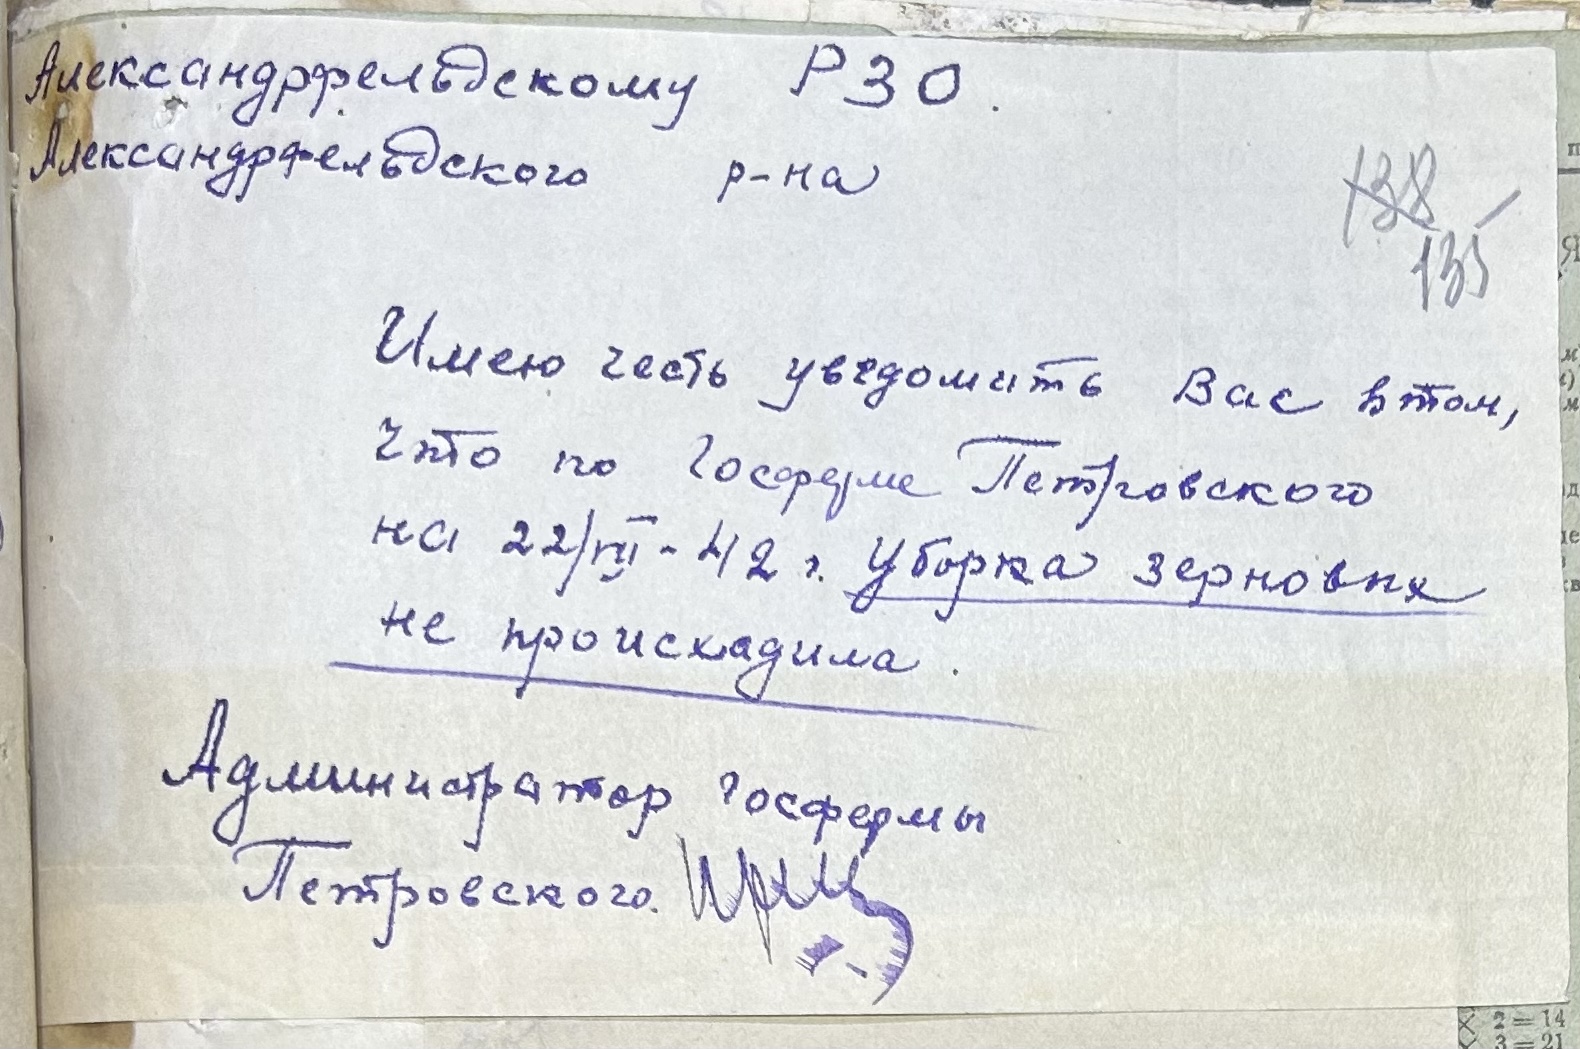 Александрфельдскому РЗО.
Александрфельдского р-на
138
135
Имею честь уведомить Вас втом,
что по Госферме Петровского
на 22/VII-42 г. Уборка зерновых
не происхадила.
Администратор Госфермы
Петровского.
2 = 14
3 = 21